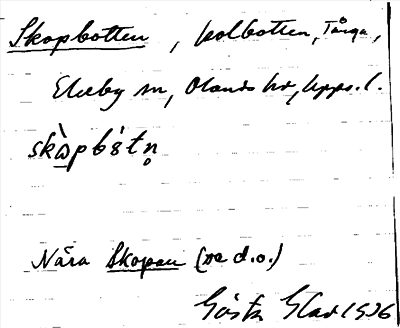 Skopbotten, kolbotten, Tånga,
Ekeby sn, Olands hd, Upps. l.
skò̱pbò̀tn̥
Nära Skopan (se d.o.)
Gösta Elar 1936